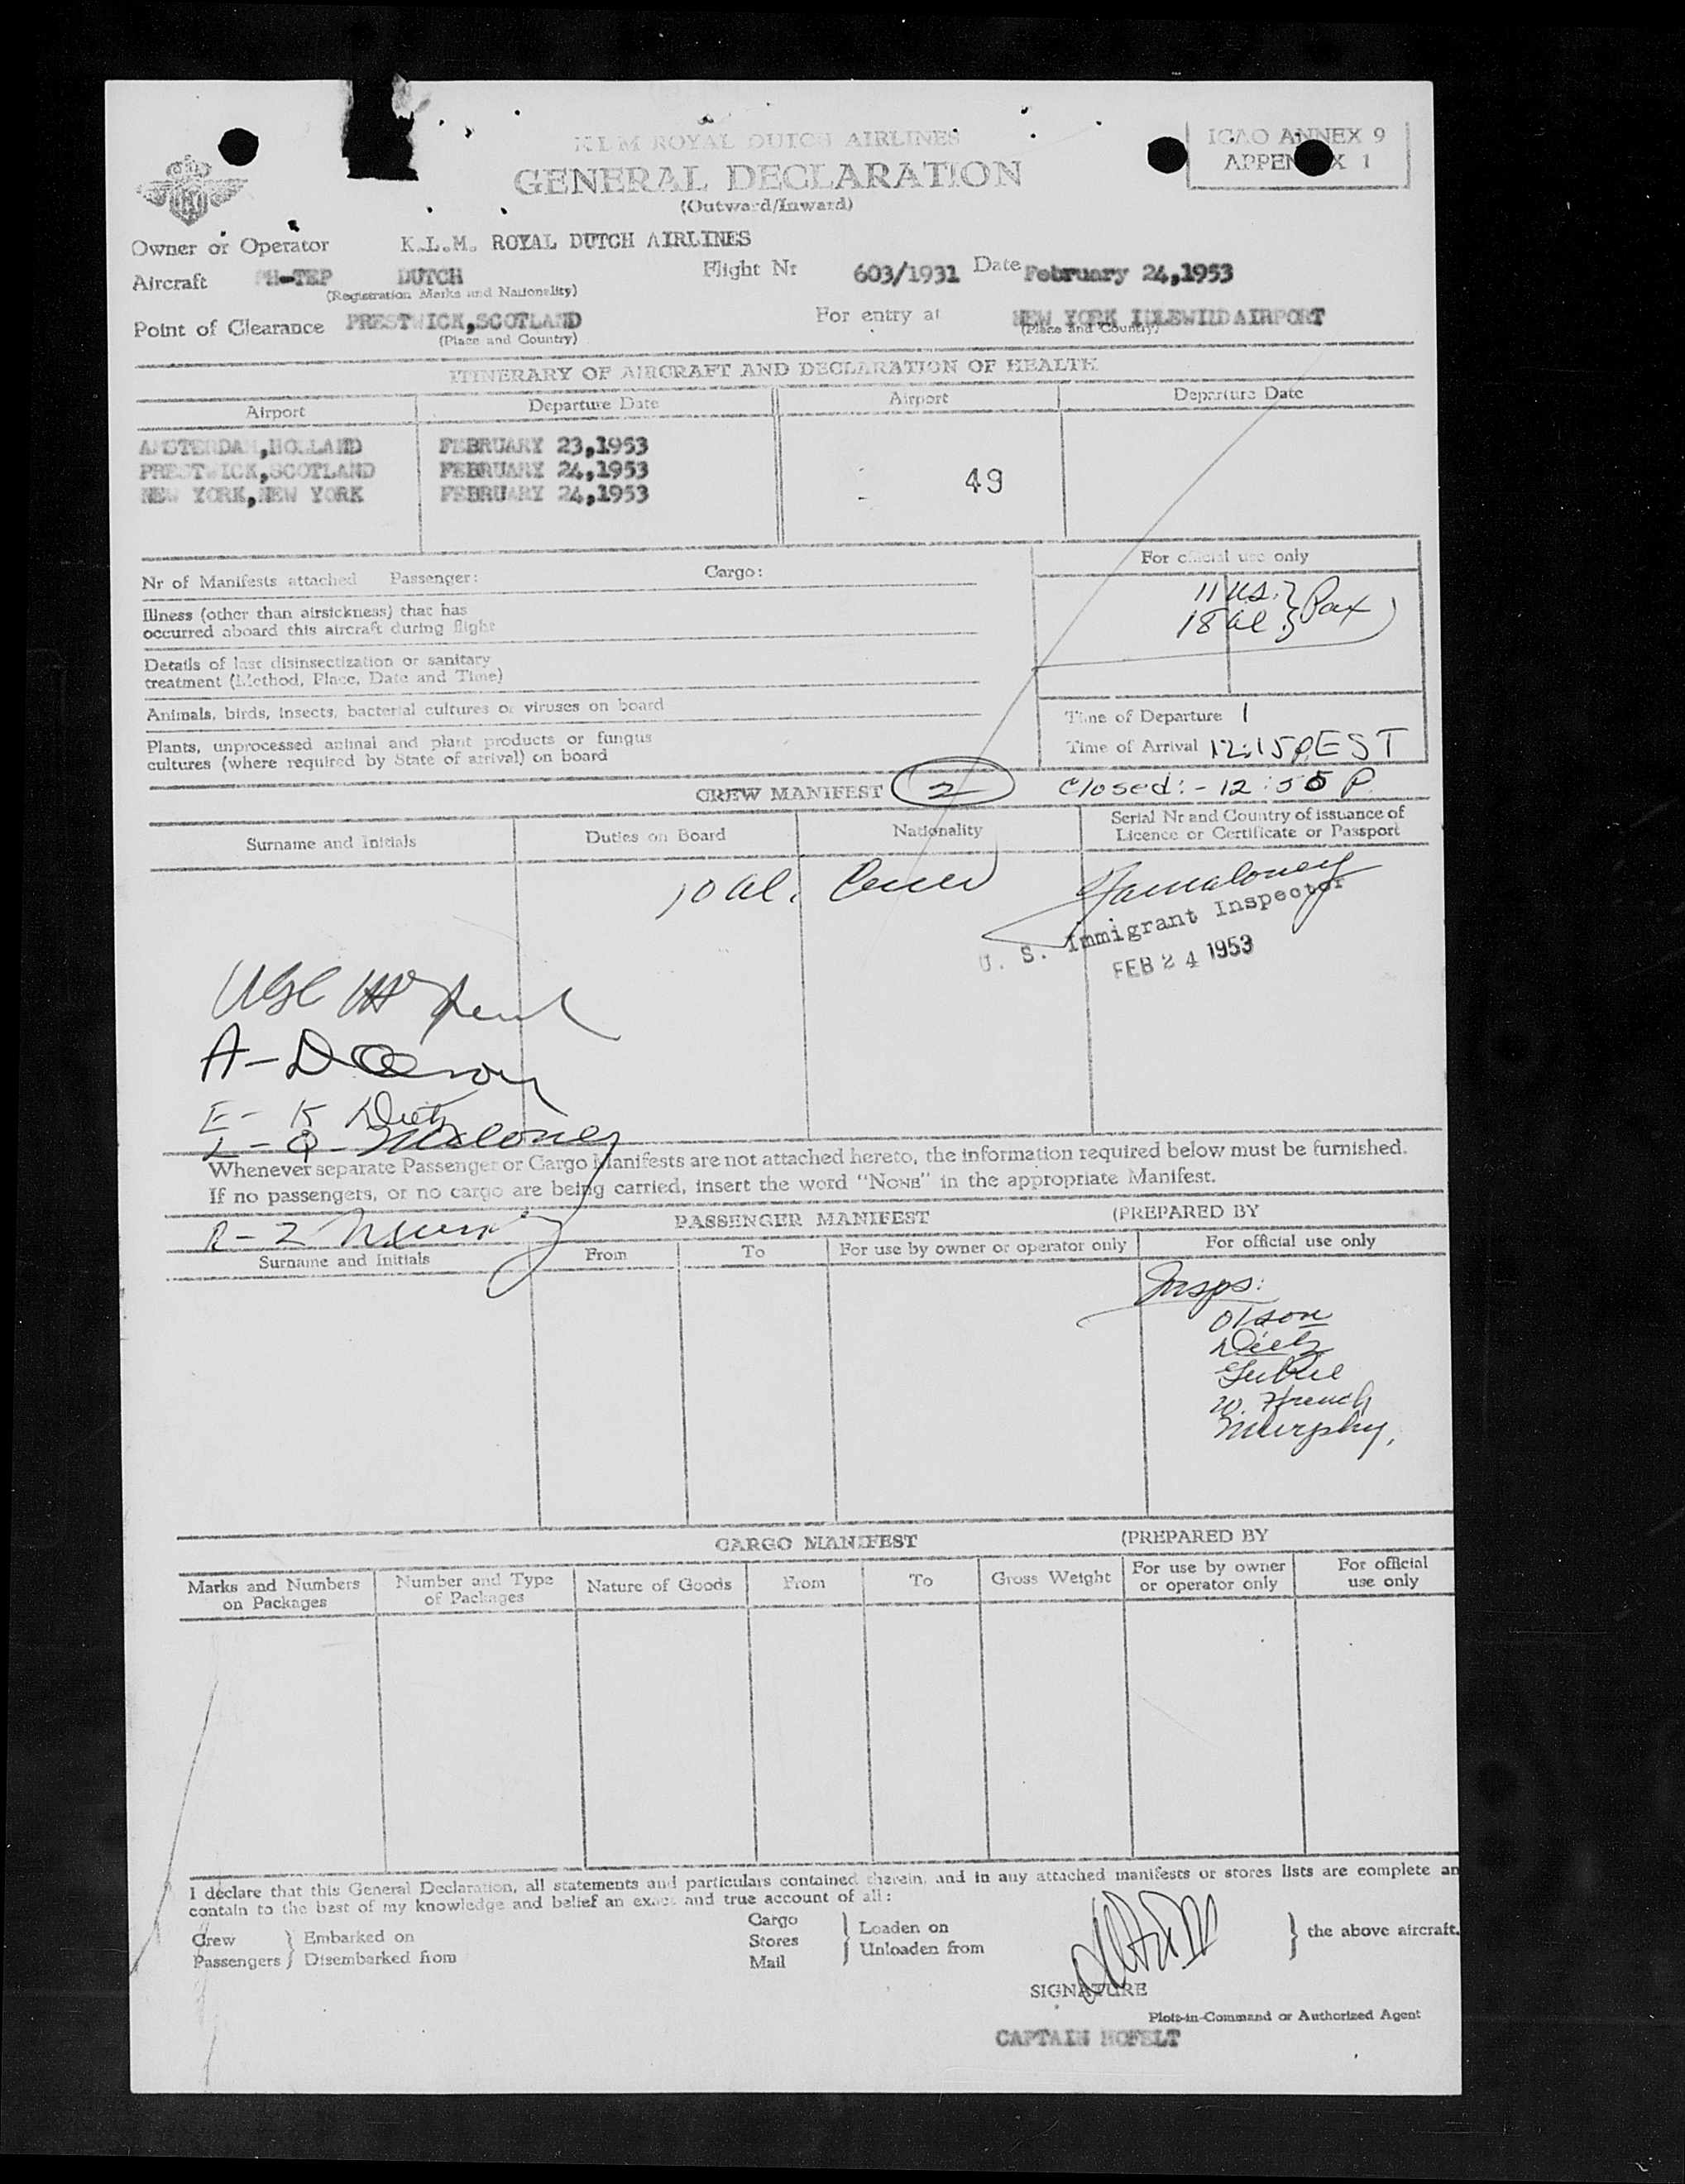 KLM ROYAL DUTCH AIRLINES
GENERAL DECLARATION
(Outward/Inward)
ICAO ANNEX 9
APPEN X 1
Owner or Operator K.L.M. ROYAL DUTCH AIRLINES
Aircraft PH-TEP DUTCH Flight Nr 603/1931 Date February 24,1953
(Registration Marks and Nationality)
Point of Clearance PRESTWICK,SCOTLAND For entry at NEW YORK IDLEWILD AIRPORT
(Place and Country) (Place and Country)
ITINERARY OF AIRCRAFT AND DECLARATION OF HEALTH
Airport Departure Date Airport Departure Date
AMSTERDAM,HOLLAND FEBRUARY 23,1953
PRESTWICK,SCOTLAND FEBRUARY 24,1953
NEW YORK,NEW YORK FEBRUARY 24,1953
49
For official use only
Nr of Manifests attached Passenger: Cargo:
11 US. } Pax
18 al }
Illness (other than airsickness) that has
occurred aboard this aircraft during flight
Details of last disinsectization or sanitary
treatment (Method, Place, Date and Time)
Animals, birds, insects, bacterial cultures or viruses on board
Plants, unprocessed animal and plant products or fungus
cultures (where required by State of arrival) on board
Time of Departure
Time of Arrival 12:15P EST
CREW MANIFEST 2 Closed:- 12:55 P.
Surname and Initials Duties on Board Nationality Serial Nr and Country of issuance of
Licence or Certificate or Passport
10 al. Crew
U. S. Immigrant Inspector
FEB 24 1953
A-
E- K Dietz
Q- Maloney
Whenever separate Passenger or Cargo Manifests are not attached hereto, the information required below must be furnished.
If no passengers, or no cargo are being carried, insert the word "NONE" in the appropriate Manifest.
R-2
PASSENGER MANIFEST (PREPARED BY
Surname and Initials From To For use by owner or operator only For official use only
Insps:
Olson
Dietz
W. French
Murphy,
CARGO MANIFEST (PREPARED BY
Marks and Numbers
on Packages
Number and Type
of Packages
Nature of Goods From To Gross Weight
For use by owner
or operator only
For official
use only
I declare that this General Declaration, all statements and particulars contained therein, and in any attached manifests or stores lists are complete an
contain to the best of my knowledge and belief an exact and true account of all:
Crew } Embarked on
Passengers } Disembarked from
Cargo
Stores
Mail
} Loaden on
Unloaden from
} the above aircraft.
SIGNATURE
Pilots-in-Command or Authorized Agent
CAPTAIN HOFELT